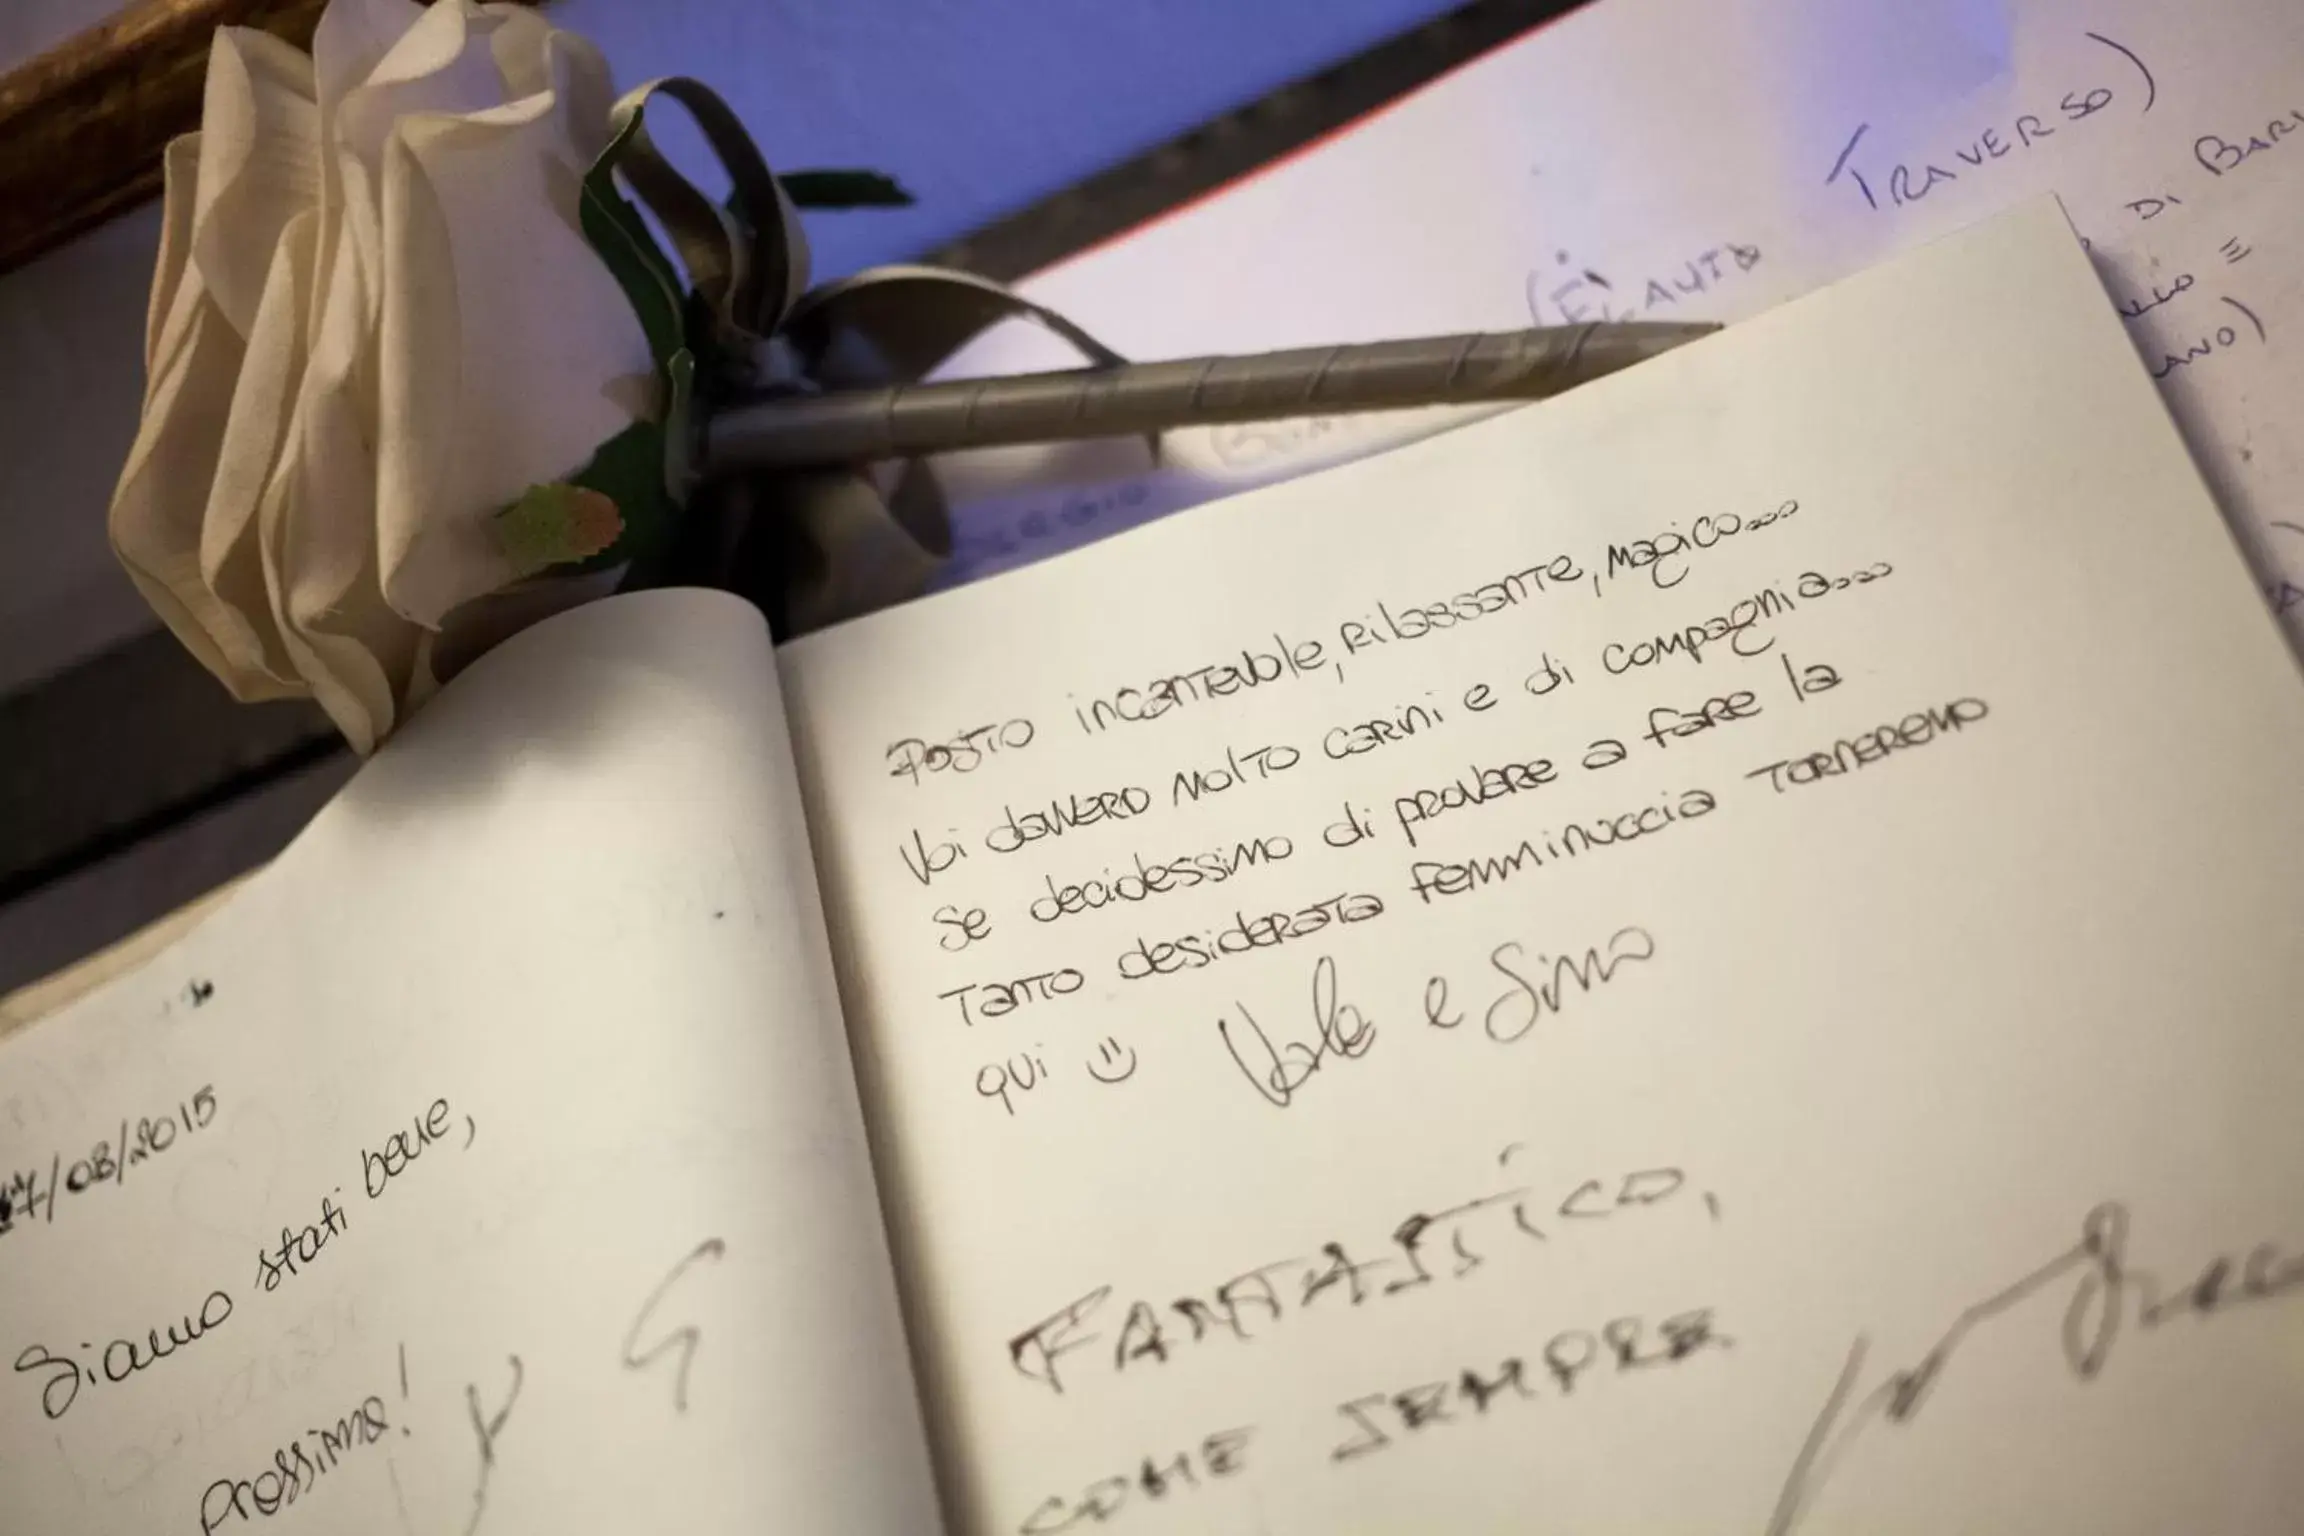 TRAVERSO)
(FLAUTO
DI BARI
ANO)
7/08/2015
Siamo stati bene,
prossima!
Posto incantevole, rilassante, magico...
Voi davvero molto carini e di compagnia...
Se decidessimo di provare a fare la
tanto desiderata femminuccia torneremo
qui Vale e Simo
FANTASTICO,
COME SEMPRE